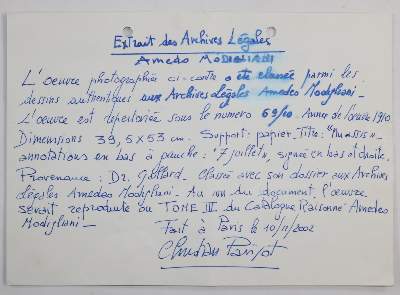 Extrait des Archives Légales
Amedeo MODIGLIANI
L'oeuvre photographiée ci-contre a été classée parmi les
dessins authentiques aux Archives Légales Amedeo Modigliani -
L'oeuvre est répertoriée sous le numéro 69/10. Année de l'oeuvre 1910
Dimensions 39,5 x 53 cm. Support: papier - Titre: "Nu assis" -
annotations en bas à gauche: "7 juillet", signée en bas à droite.
Provenance: Dr. - Classée avec son dossier aux Archives
légales Amedeo Modigliani - Au vu du document, l'oeuvre
serait reproduite au TOME III du Catalogue Raisonné Amedeo
Modigliani -
Fait à Paris le 10/11/2002
Christian Parisot